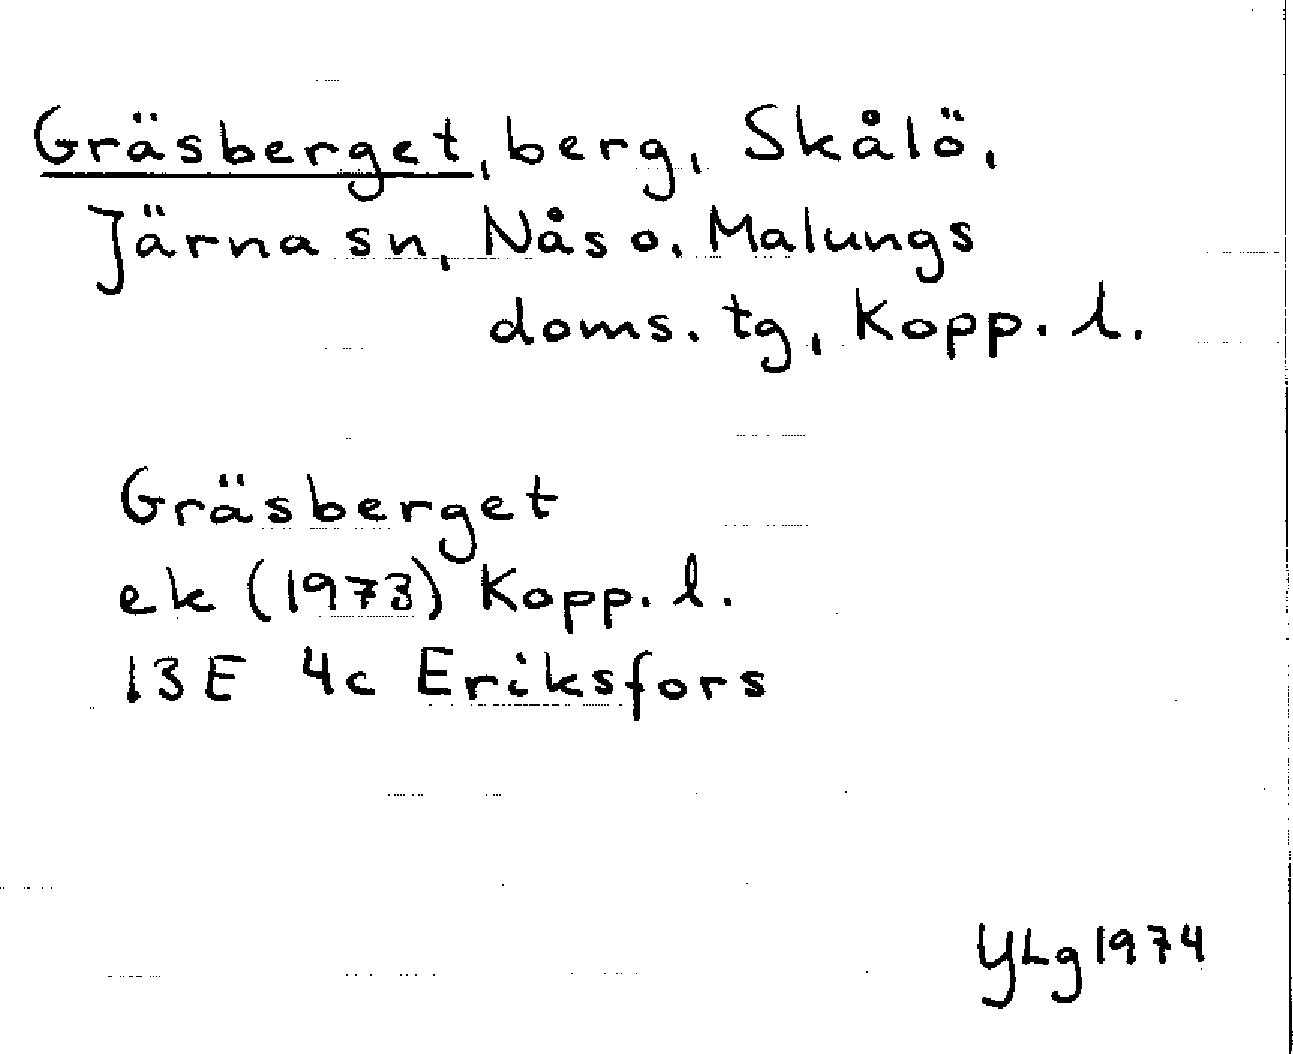 Gräsberget, berg, Skålö,
Järna sn, Nås o. Malungs
doms. tg, Kopp. l.
Gräsberget
ek (1973) Kopp. l.
13E 4c Eriksfors
YLg 1974